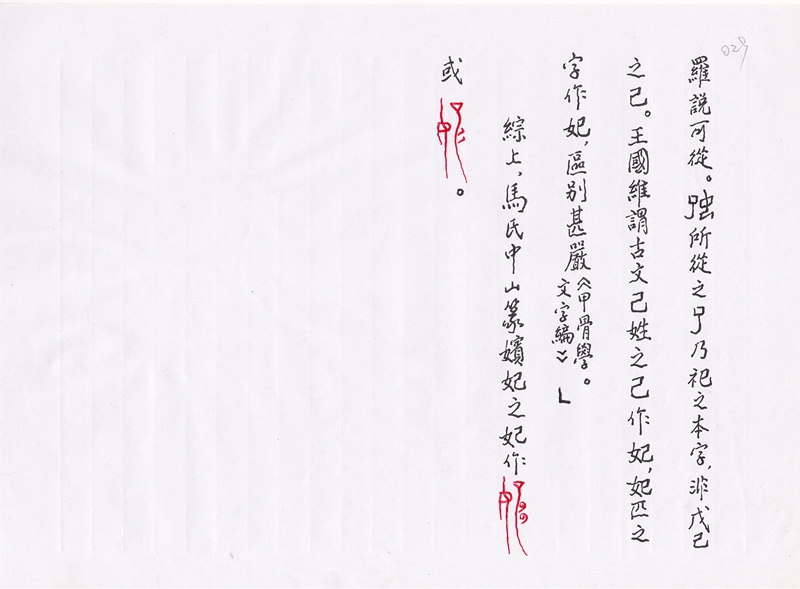 029
羅說可從。所從之乃祀之本字，非戊己
之己。王國維謂古文己姓之己作妃，妃匹之
字作妃，區別甚嚴《甲骨學。文字編》」
綜上，馬氏中山篆嬪妃之妃作
或。